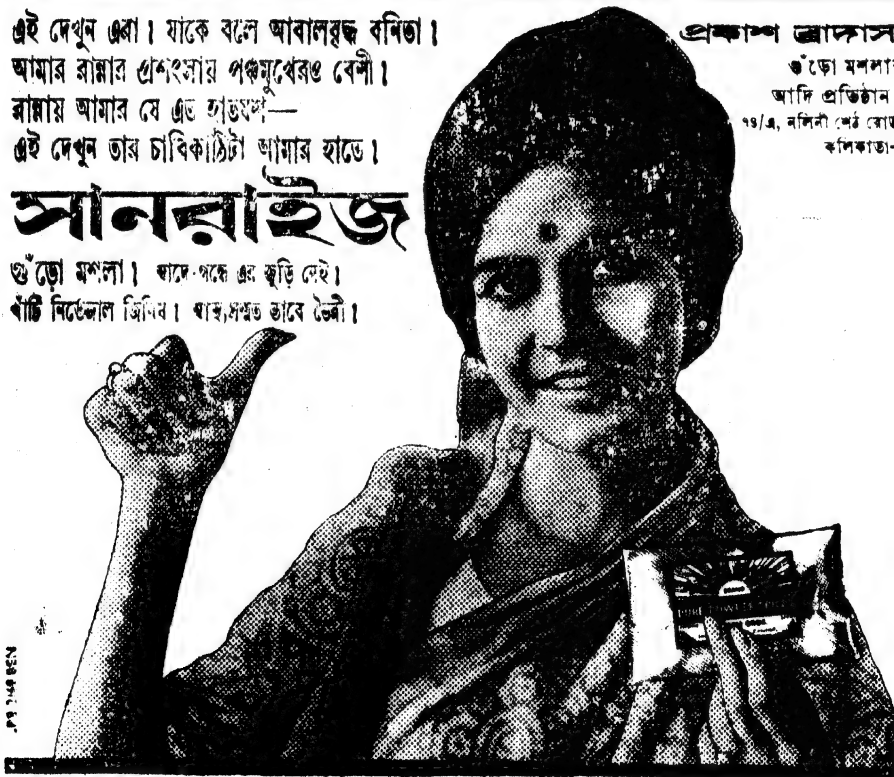 এই দেখুন এরা। যাকে বলে আবালবৃদ্ধ বনিতা।
আমার রান্নার প্রশংসায় পঞ্চমুখেরও বেশী।
রান্নায় আমার যে এত হাতযশ—
এই দেখুন তার চাবিকাঠিটা আমার হাতে।
সানরাইজ
গুঁড়ো মশলা। স্বাদে-গন্ধে এর জুড়ি নেই।
খাঁটি নির্ভেজাল জিনিষ। স্বাস্থ্যসম্মত ভাবে তৈরী।
প্রকাশ ব্রাদাস
গুঁড়ো মশলা
আদি প্রতিষ্ঠান
৭৪/এ, নলিনী শেঠ রোড
কলিকাতা-